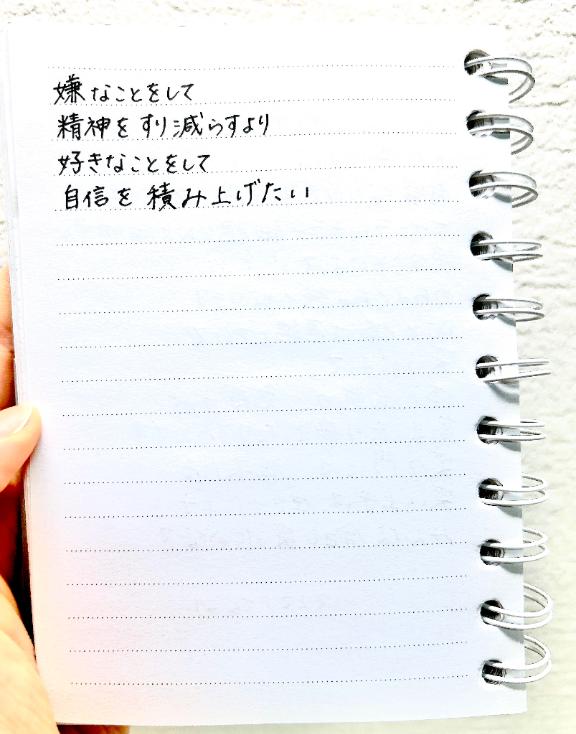 嫌なことをして
精神をすり減らすより
好きなことをして
自信を積み上げたい